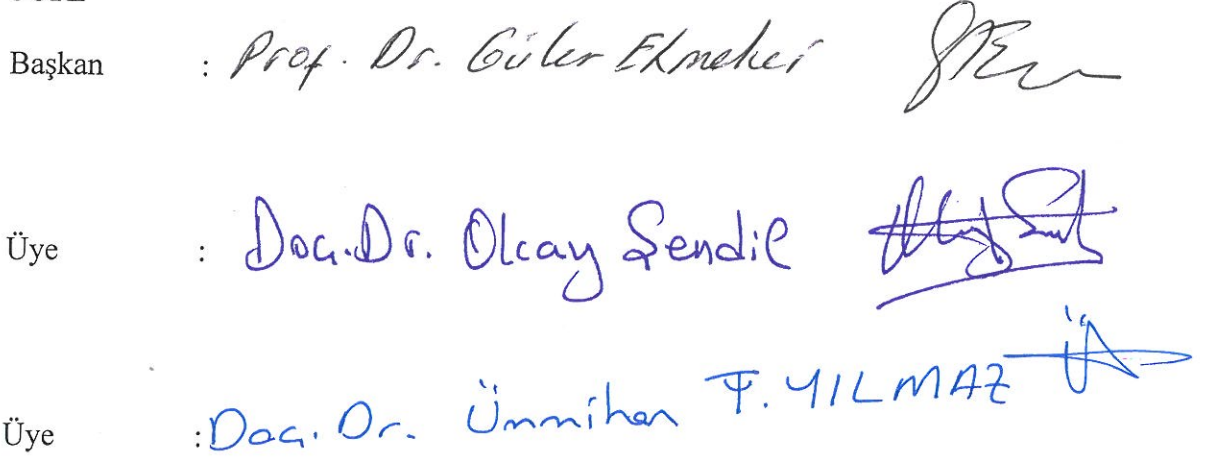 Başkan : Prof. Dr. Güler Ekmekci
Üye : Doç.Dr. Olcay Şendil
Üye : Doç. Dr. Ümmihan T. YILMAZ